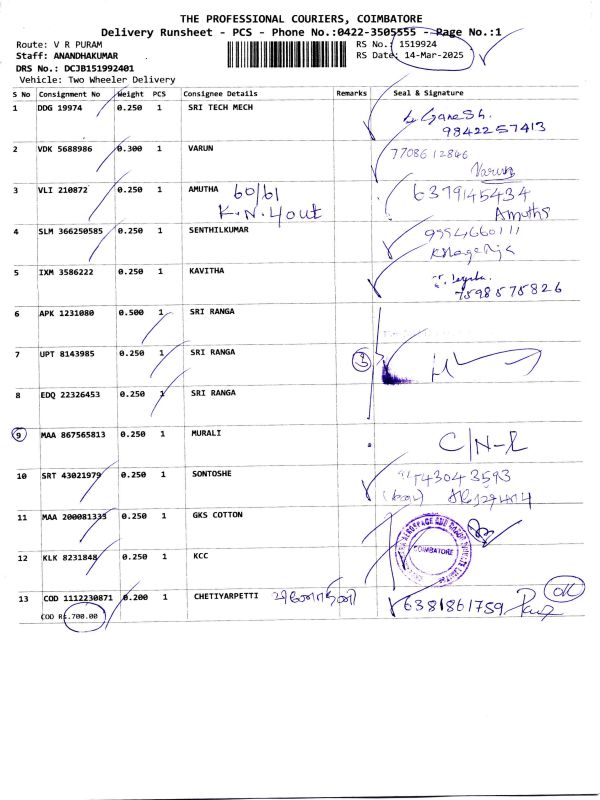 THE PROFESSIONAL COURIERS, COIMBATORE
Delivery Runsheet - PCS - Phone No.:0422-3505555 - Page No.:1
Route: V R PURAM
RS No.: 1519924
Staff: ANANDHAKUMAR
RS Date: 14-Mar-2025
DRS No.: DCJB151992401
Vehicle: Two Wheeler Delivery
S No Consignment No Weight PCS Consignee Details Remarks Seal & Signature
1 DDG 19974 0.250 1 SRI TECH MECH
Ganesh.
9842257413
2 VDK 5688986 0.300 1 VARUN 7708612846
Varun
3 VLI 210872 0.250 1 AMUTHA 60/61 6379145434
K.N.4out Amutha
4 SLM 366250585 0.250 1 SENTHILKUMAR 9994660111
5 IXM 3586222 0.250 1 KAVITHA
7598575826
6 APK 1231080 0.500 1 SRI RANGA
7 UPT 8143985 0.250 1 SRI RANGA 3
8 EDQ 22326453 0.250 1 SRI RANGA
9 MAA 867565813 0.250 1 MURALI C/N-L
10 SRT 43021979 0.250 1 SONTOSHE
11 MAA 200081333 0.250 1 GKS COTTON
COIMBATORE
12 KLK 8231848 0.250 1 KCC
13 COD 1112230871 0.200 1 CHETIYARPETTI 6381861759 OK
COD Rs.700.00